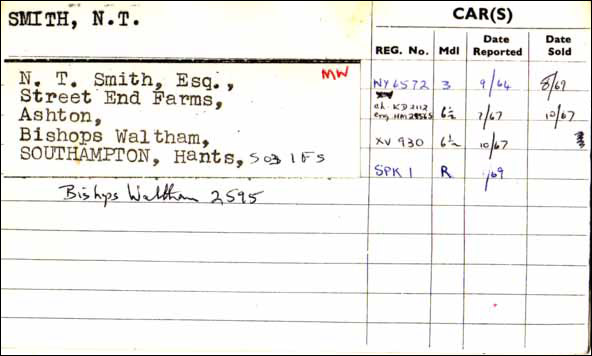 SMITH, N.T.
CAR(S)
REG. No. Mdl Date Reported Date Sold
MW
N. T. Smith, Esq.,
Street End Farms,
Ashton,
Bishops Waltham,
SOUTHAMPTON, Hants, SO3 1FS
Bishops Waltham 2595
NY 6572 3 9/64 8/69
ch. KD 2112
eng. HM 28565 6½ 7/67 10/67
XV 930 6½ 10/67
SPK 1 R /69